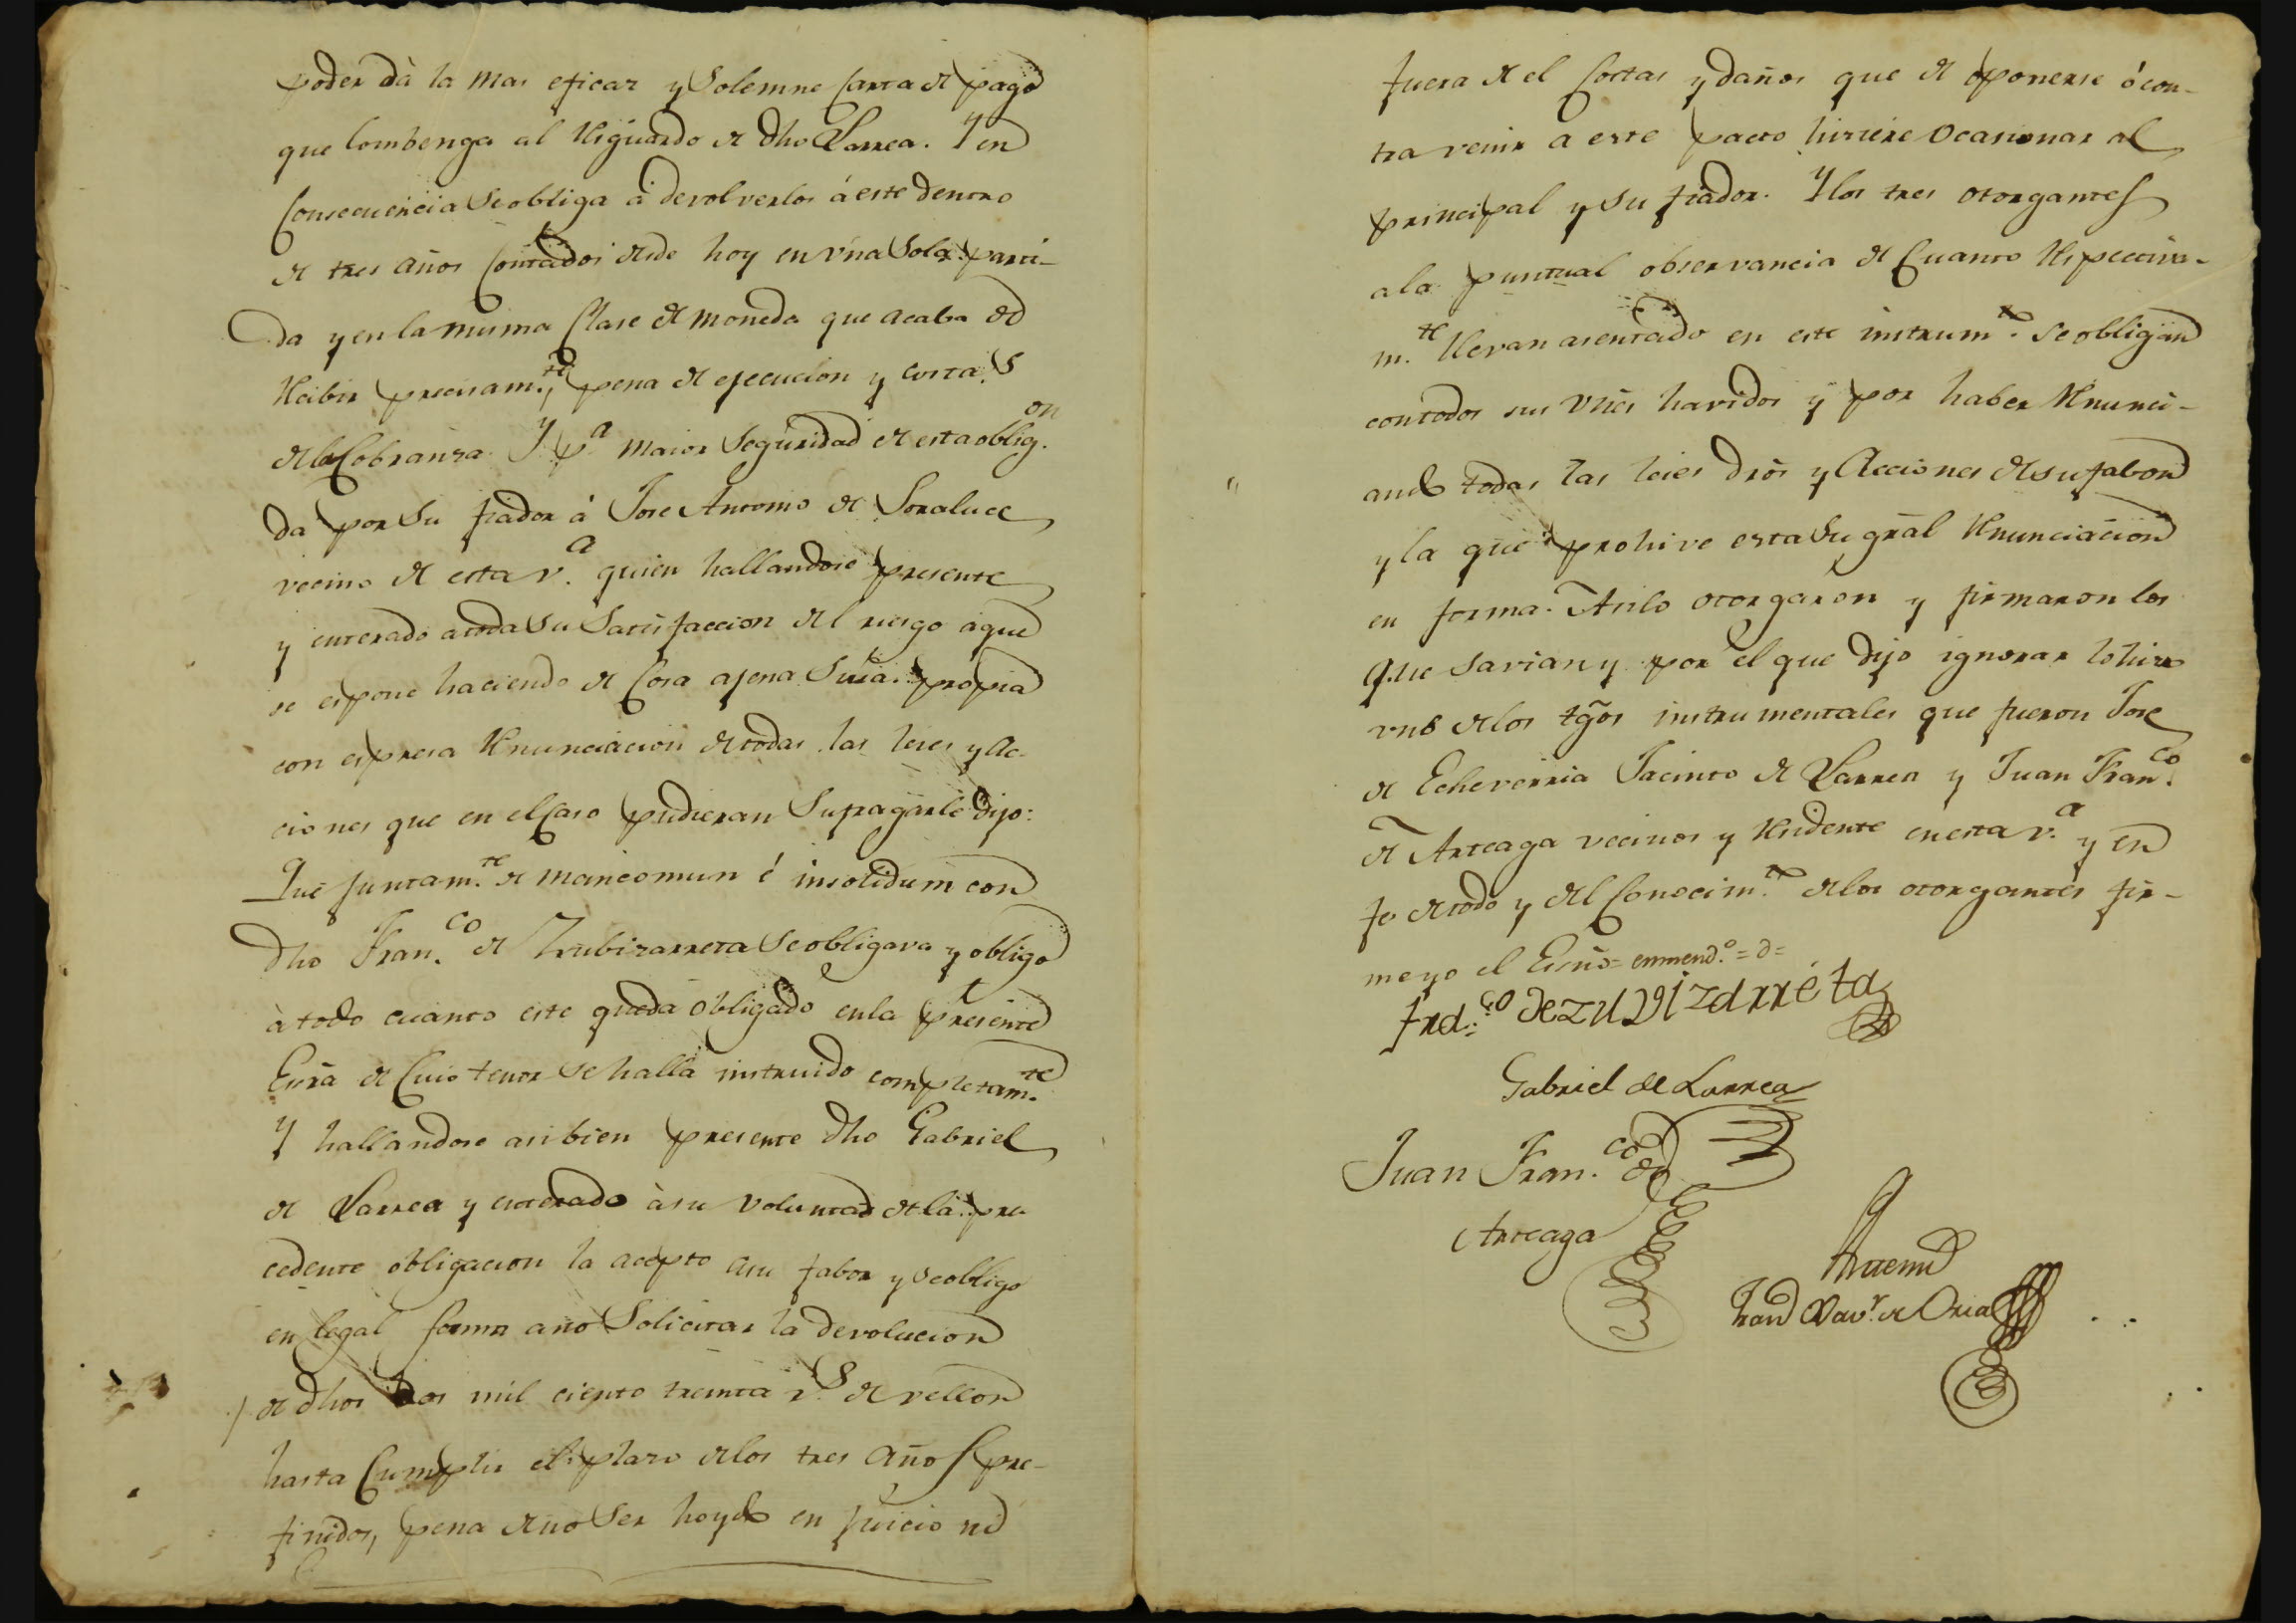 poder dà la mas eficaz y Solemne Carta de pago
que Combenga al Resguardo de dho Larrea. Y en
Consecuencia se obliga à devolverlos à este dentro
de tres años Contados desde hoy en vna Sola parti-
da y en la misma Clase de moneda que acaba de
Recibir precisam.te, pena de ejecucion y costas
de la Cobranza Y p.a maior Seguridad de esta oblig.on
da por Su fiador à Jose Antonio de Loraluce
vecino de esta v.a quien hallandose presente
y enterado a toda Su Satisfaccion del riesgo a que
se espone haciendo de Cosa ajena Suia propia
con espresa Renunciacion de todas las leies y Ac-
ciones que en el Caso pudieran Sufragarle dijo:
Que juntam.te de mancomun é insolidum con
dho Fran.co de Zubizarreta Se obligava y obligo
à todo cuanto este queda obligado en la presente
Esrra de Cuio tenor se halla instruido completam.te
Y hallandose asi bien presente dho Gabriel
de Larrea y enterado à su voluntad de la pre
cedente obligacion la acepto a su fabor y se obligo
en legal forma a no Solicitar la devolucion
de dhos dos mil ciento treinta r.s de vellon
hasta Cumplir el plazo de los tres años pre-
finidos, pena de no Ser hoydo en juicio ni
fuera de el Costas y daños que de oponerse ó con-
tra venir a este pacto hiciere Ocasionar al
principal y su fiador. Y los tres otorgantes
a la puntual observancia de Cuanto Respectiva-
m.te llevan asentado en este instrum.to se obligan
con todos sus vnes havidos y por haber Renunci-
ando todas las leies dros y Acciones de su fabor
y la que prohive esta Su gral Renunciacion
en forma. Asi lo otorgaron y firmaron los
que savian y por el que dijo ignorar lo hizo
vno de los tgos instrumentales que fueron Jose
de Echeverria Jacinto de Larrea y Juan Fran.co
de Arteaga vecinos y Residente en esta v.a y en
fe de todo y del Conocim.to de los otorgantes fir-
me yo el Essno = enmend.o = d =
Fra.co de zuvizarreta
Gabriel de Larrea
Juan Fran.co de
Arteaga
Antemi
Fran Xav.r de Oria